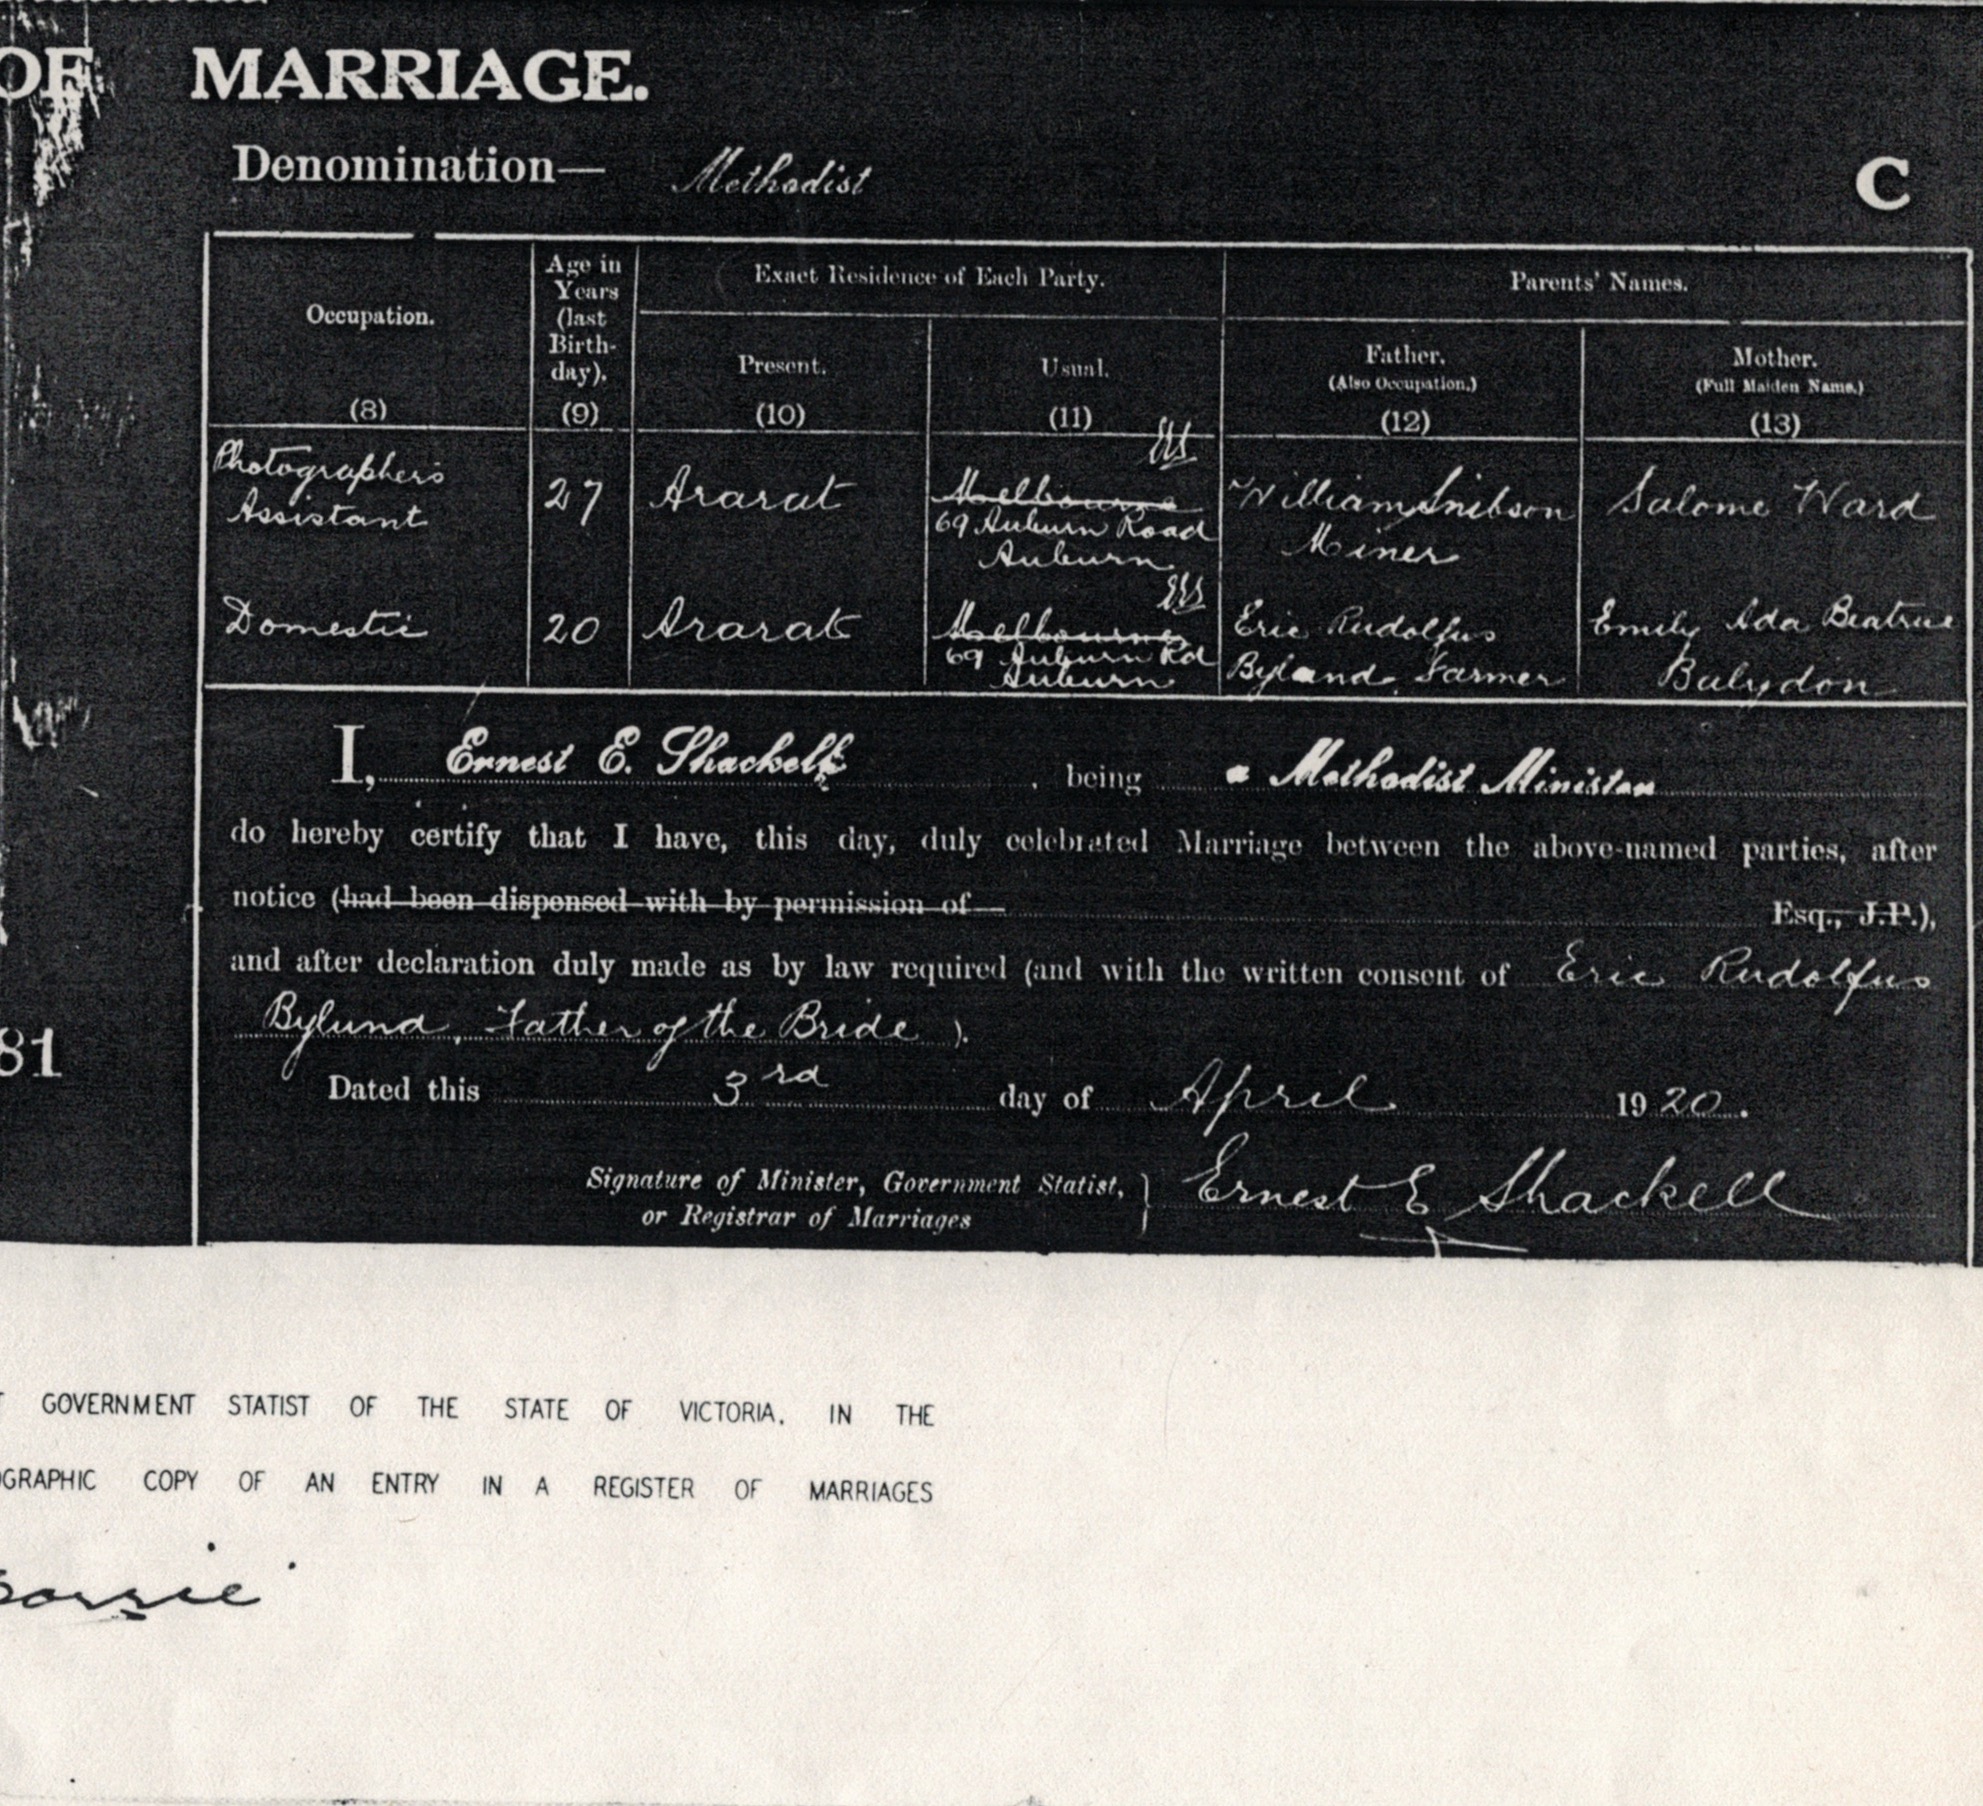 OF MARRIAGE.
Denomination— Methodist
C
Occupation.
(8)
Age in
Years
(last
Birth-
day).
(9)
Exact Residence of Each Party.
Present.
(10)
Usual.
(11)
Parents' Names.
Father.
(Also Occupation.)
(12)
Mother.
(Full Maiden Name.)
(13)
Photographer's
Assistant
27
Ararat
EES
Melbourne
69 Auburn Road
Auburn
William Snibson
Miner
Salome Ward
Domestic
20
Ararat
EES
Melbourne
69 Auburn Rd
Auburn
Eric Rudolfus
Byland, Farmer
Emily Ada Beatrice
Bulydon
I, Ernest E. Shackell, being a Methodist Minister
do hereby certify that I have, this day, duly celebrated Marriage between the above-named parties, after
notice (had been dispensed with by permission of— Esq., J.P.),
and after declaration duly made as by law required (and with the written consent of Eric Rudolfus
Bylund, Father of the Bride ).
81
Dated this 3rd day of April 1920.
Signature of Minister, Government Statist,
or Registrar of Marriages } Ernest E Shackell
GOVERNMENT STATIST OF THE STATE OF VICTORIA, IN THE
OGRAPHIC COPY OF AN ENTRY IN A REGISTER OF MARRIAGES